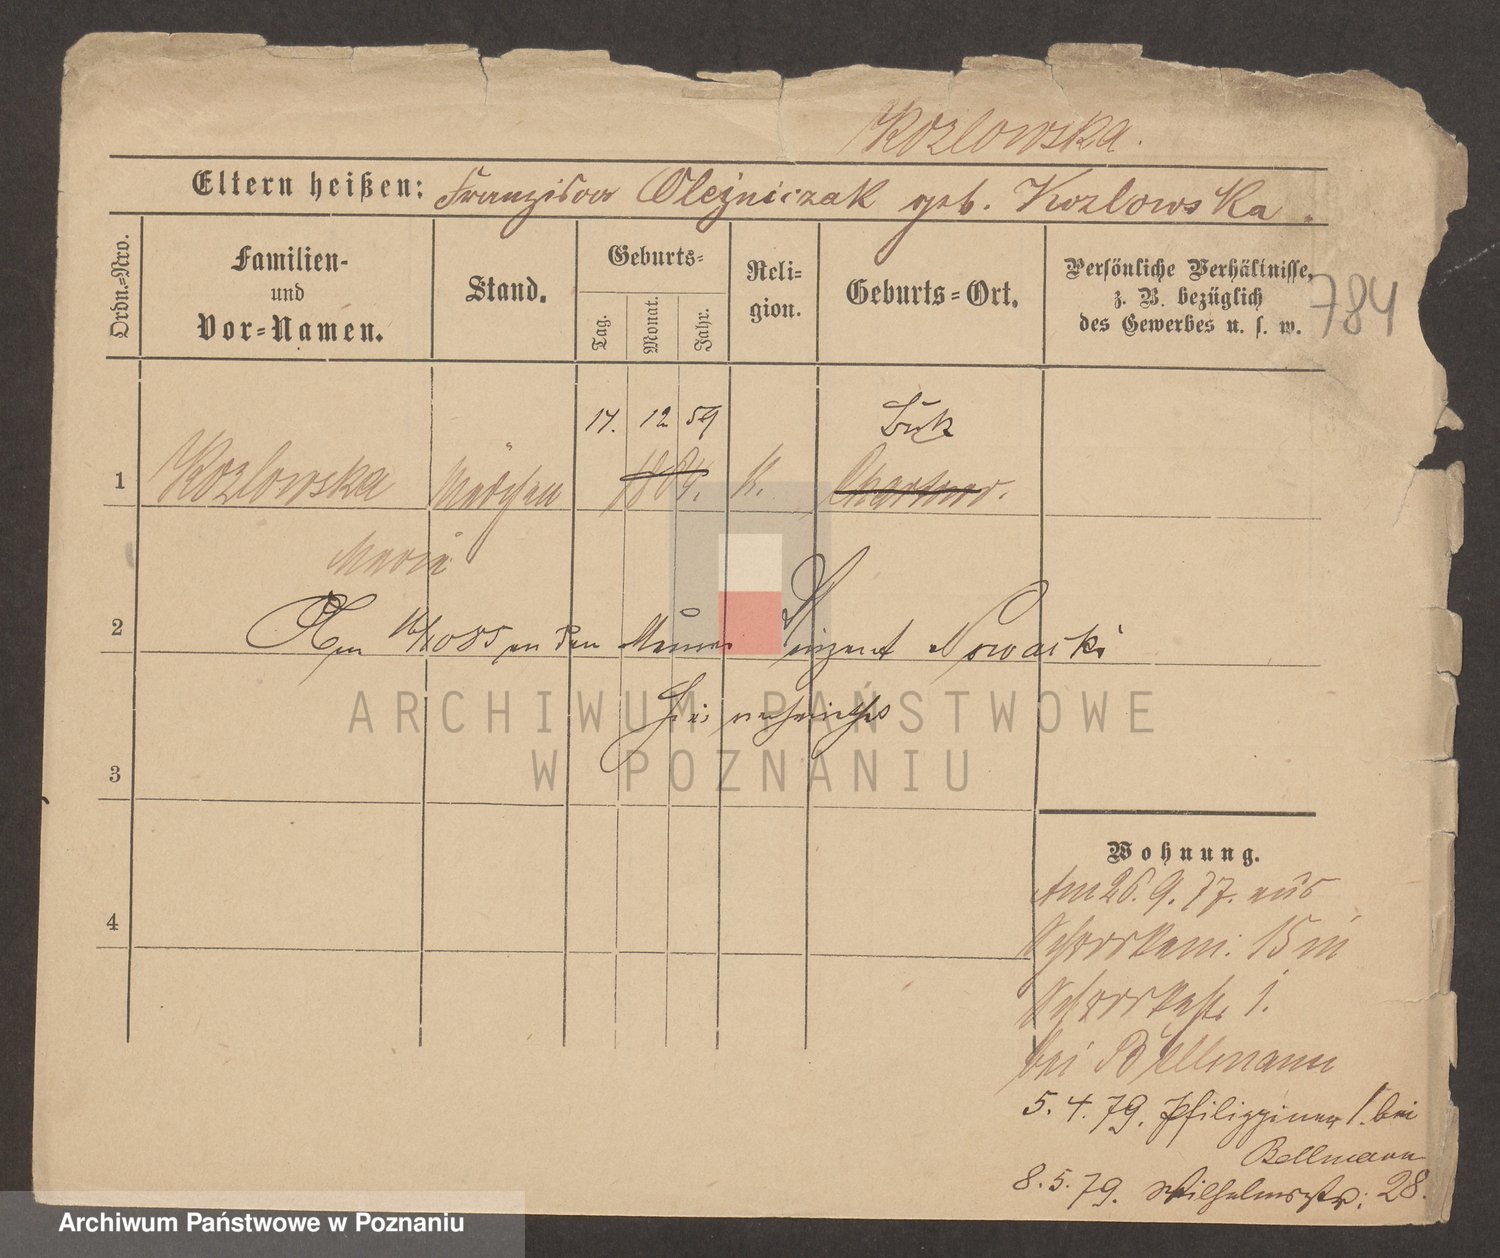 Kozlowska.
Eltern heißen: Franziska Olejniczak geb. Kozlowska.
Ordn.-Nro.
Familien-
und
Vor-Namen.
Stand.
Geburts-
Tag.
Monat.
Jahr.
Reli-
gion.
Geburts-Ort.
Persönliche Verhältnisse,
z. B. bezüglich
des Gewerbes u. s. w.
784
17. 12 59 Buk
1 Kozlowska Mädchen K.
Maria
2 Am 85 an den Maurer Vinzent Nowacki
hier verheirathet
3
ARCHIWUM PAŃSTWOWE
W POZNANIU
Wohnung.
Am 26. 9. 77. aus
4
15 in
1.
bei Bellmann
5. 4. 79. 1. bei
Bellmann
8. 5. 79. Wilhelmstr: 28.
Archiwum Państwowe w Poznaniu